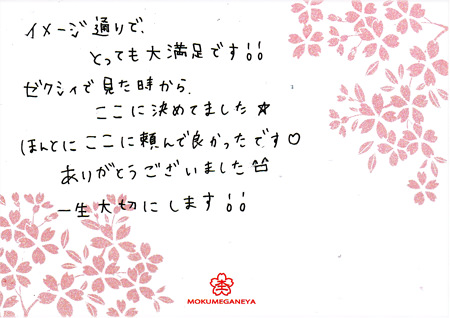 イメージ通りで、
とっても大満足です!!
ゼクシィで見た時から、
ここに決めてました☆
ほんとにここに頼んで良かったです♡
ありがとうございました
一生大切にします!!
MOKUMEGANEYA